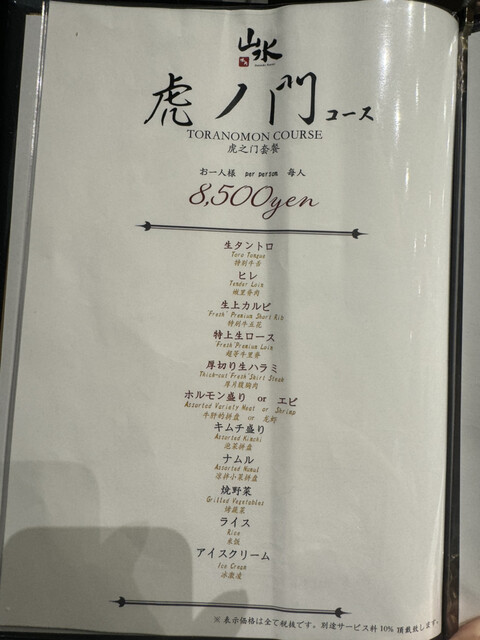 山水
虎ノ門コース
TORANOMON COURSE
虎之门套餐
お一人様 per person 每人
8,500yen
生タントロ
Toro Tongue
特别牛舌
ヒレ
Tender Loin
嫩里脊肉
生上カルビ
"Fresh" Premium Short Rib
特别牛五花
特上生ロース
"Fresh" Premium Loin
超等牛里脊
厚切り生ハラミ
Thick-cut Fresh Skirt Steak
厚片腹胸肉
ホルモン盛り or エビ
Assorted Variety Meat or Shrimp
牛杂的拼盘 or 龙虾
キムチ盛り
Assorted Kimchi
泡菜拼盘
ナムル
Assorted Namul
凉拌小菜拼盘
焼野菜
Grilled Vegetables
烤蔬菜
ライス
Rice
米饭
アイスクリーム
Ice Cream
冰激凌
※ 表示価格は全て税抜です。別途サービス料10% 頂戴致します。